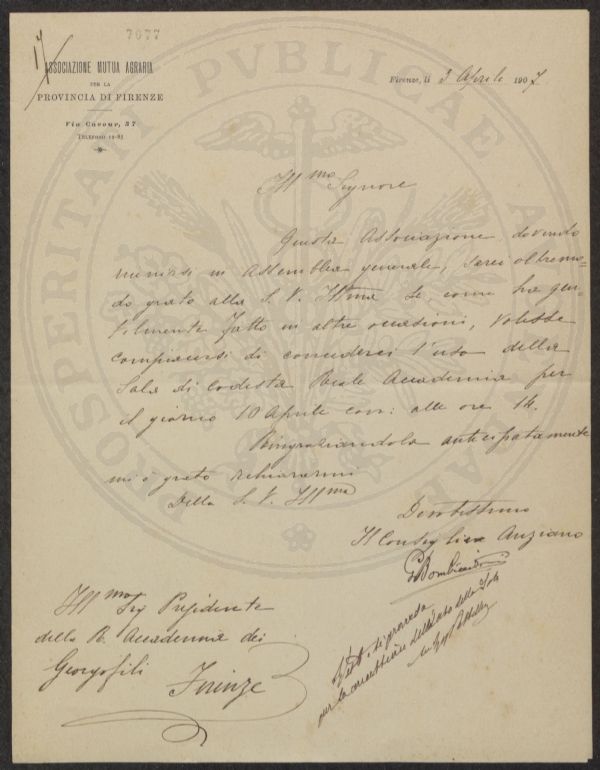 7077
17
ASSOCIAZIONE MUTUA AGRARIA
PER LA
PROVINCIA DI FIRENZE
Via Cavour, 37
TELEFONO
Firenze, li 3 Aprile 1907
PROSPERITATI PVBLICAE
Ill.mo Signore
Questa Associazione dovendo
riunirsi in Assemblea generale, sarei oltremo-
do grato alla S. V. Ill.ma se come ha gen-
tilmente fatto in altre occasioni, volesse
compiacersi di concederci l'uso della
Sala di codesta Reale Accademia per
il giorno 10 Aprile corr: alle ore 14.
Ringraziandola anticipatamente
mi è grato dichiararmi
Della S. V. Ill.ma
Devotissimo
Il Consigliere Anziano
Ill.mo Sig Presidente
della R. Accademia dei
Georgofili
Firenze
si provveda
per la concessione dell'uso della Sala